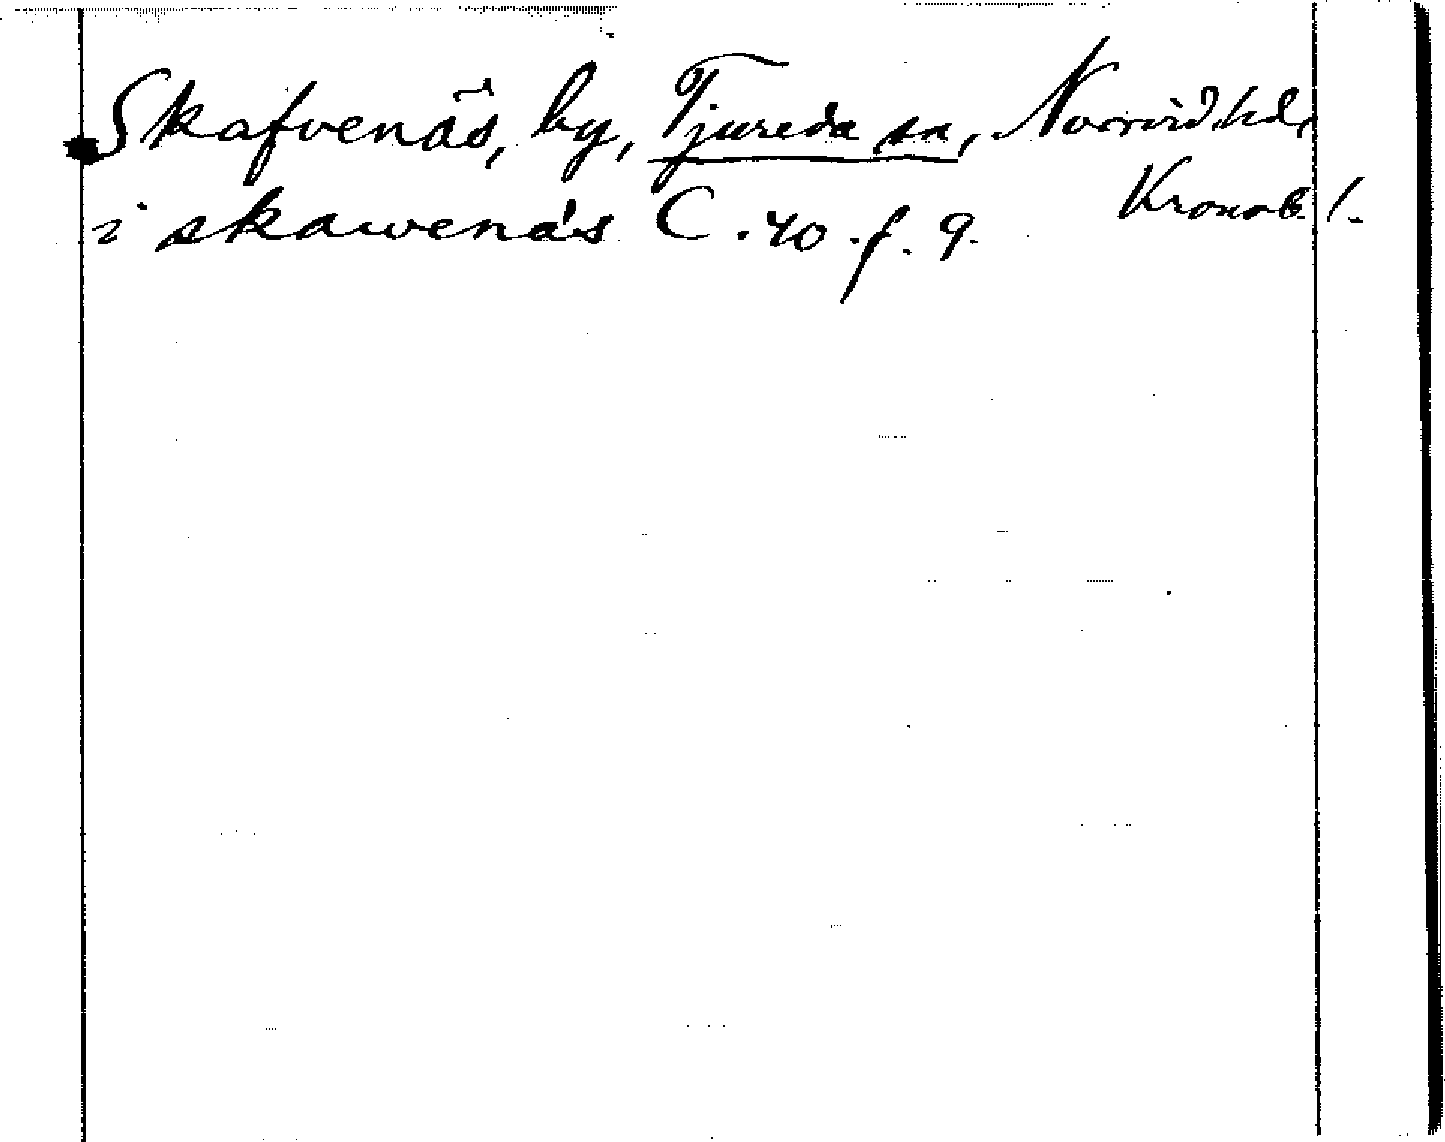 Skafvenäs, by, Tjureda sn, Norrvid. hd,
Kronob. l.
i skawenäs C. 40. f. 9.